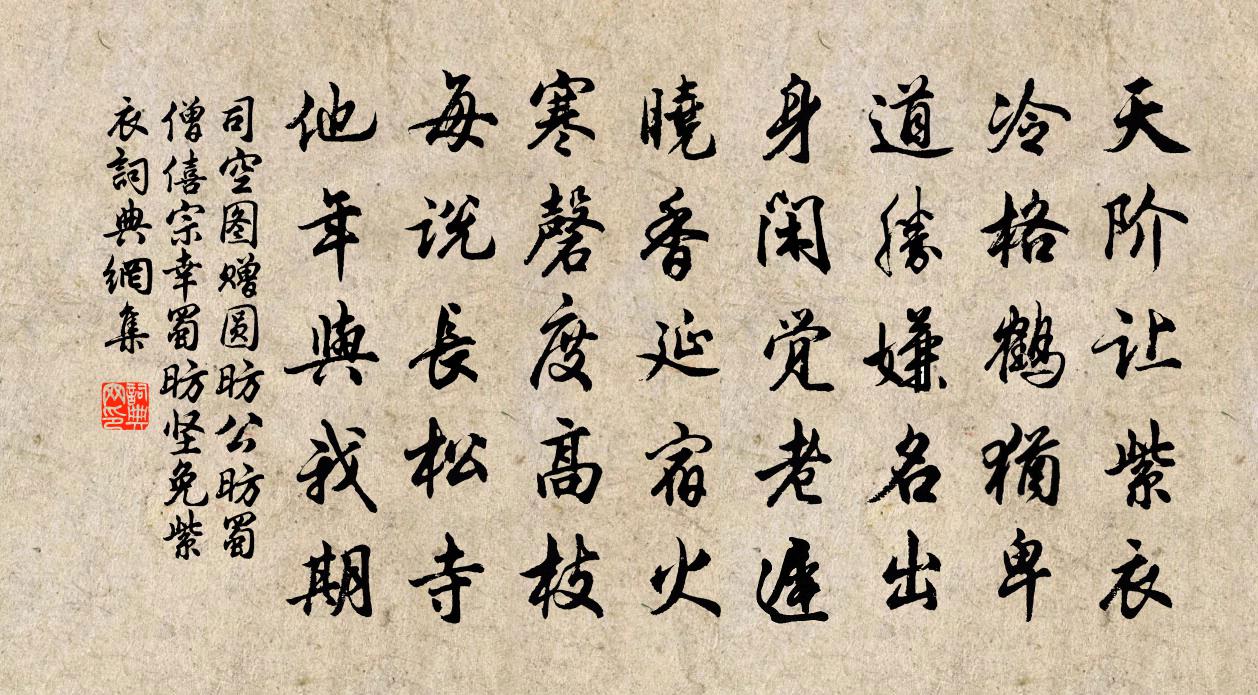 天阶让紫衣
冷格鹤犹卑
道勝嫌名出
身闲觉老遲
曉香延宿火
寒磬度高枝
每说長松寺
他年與我期
司空图赠圆昉公昉蜀
僧僖宗幸蜀昉坚免紫
衣詞典網集
詞典网印